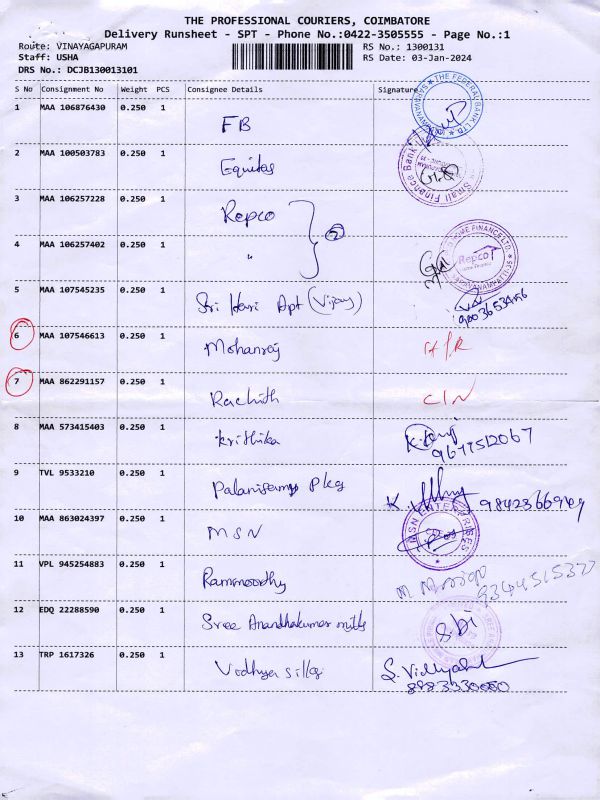 THE PROFESSIONAL COURIERS, COIMBATORE
Delivery Runsheet - SPT - Phone No.:0422-3505555 - Page No.:1
Route: VINAYAGAPURAM RS No.: 1300131
Staff: USHA RS Date: 03-Jan-2024
DRS No.: DCJB130013101
S No Consignment No Weight PCS Consignee Details Signature
THE FEDERAL BANK LTD.
1 MAA 106876430 0.250 1 FB
Small Finance Bank
2 MAA 100503783 0.250 1 Equitas
3 MAA 106257228 0.250 1 Repco 2
HOME FINANCE LTD.
Repco
4 MAA 106257402 0.250 1 "
5 MAA 107545235 0.250 1 Sri Hari Apt (Vijay)
6 MAA 107546613 0.250 1 Mohanraj
7 MAA 862291157 0.250 1 Rachith C/N
8 MAA 573415403 0.250 1 krithika 9677512067
9 TVL 9533210 0.250 1 Palanisamy Pkg K.
MSN ENTERPRISES
10 MAA 863024397 0.250 1 MSN
11 VPL 945254883 0.250 1 Rammoorthy
12 EDQ 22288590 0.250 1 Sree Anandhakumar mills
13 TRP 1617326 0.250 1 Vidhya silks S. Vidhya